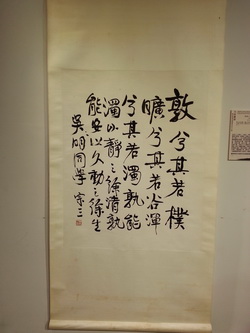 敦兮其若樸
曠兮其若谷渾
兮其若濁孰能
濁以靜之徐清孰
能安以久動之徐生
吳明同學 宗三